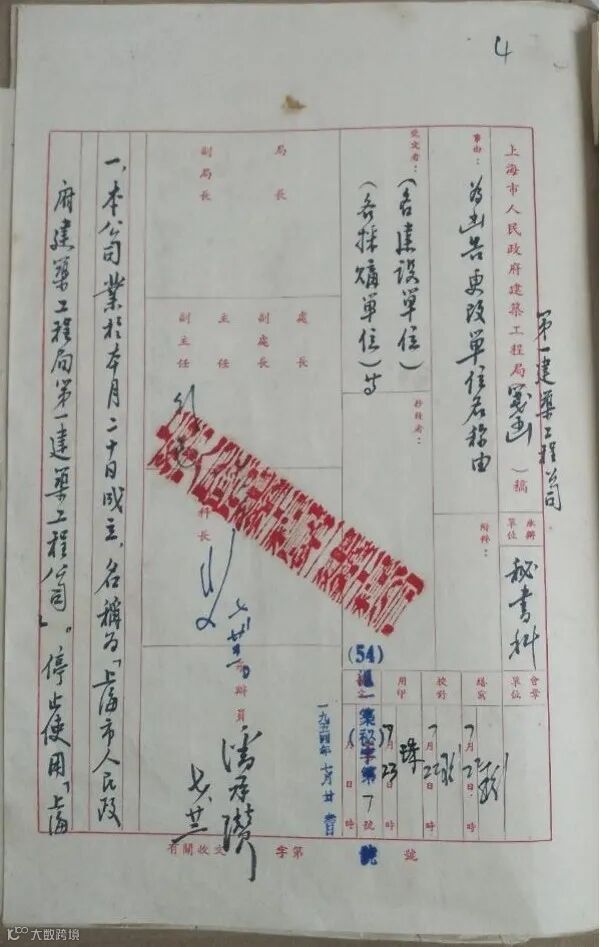 4
第一建築工程公司
上海市人民政府建築工程局箋函(稿)
承辦單位
秘書科
會章單位
事由：
為函告更改單位名称由
附件：
繕寫
7月22日 時
校對
7月22日 時
用印
7月23日 時
珠
受文者：
(各建設單位)
(各採購單位)等
抄致者：
(54)
築秘字第7號
一九五四年七月廿 日
局長
副局長
處長
副處長
主任
副主任
科長
辦員
七、廿二
一、本公司業於本月二十日成立、名稱为「上海市人民政
府建築工程局第一建築工程公司」。停止使用「上海
號
第
字
有關收文
大数跨境